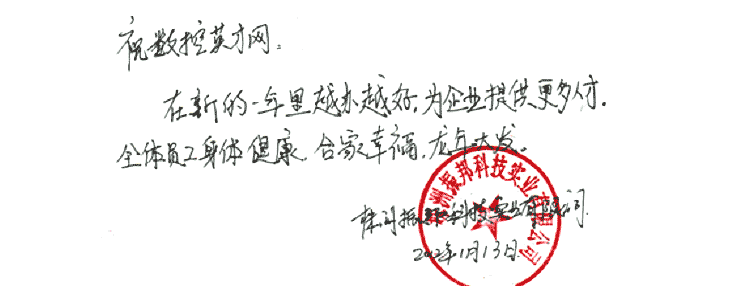 祝数控英才网。
在新的一年里越办越好,为企业提供更多人才.
全体员工身体健康 合家幸福,龙年大发.
株洲振邦科技实业有限公司
株洲振邦科技实业有限公司
2012年1月13日